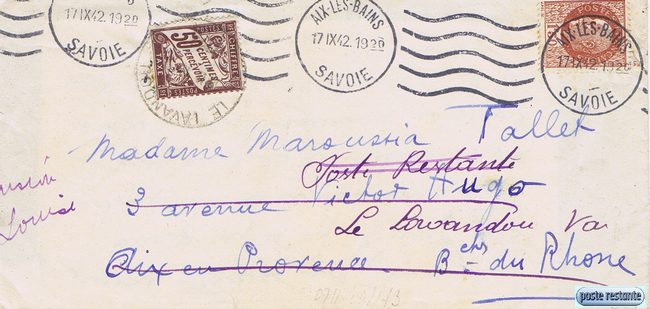 17 IX 42. 19 20
SAVOIE
AIX-LES-BAINS
17 IX 42. 19 20
SAVOIE
AIX-LES-BAINS
17 IX 42. 19 20
SAVOIE
POSTES
50
CENTIMES
A PERCEVOIR
LE LAVANDOU
Madame Maroussia Tallet
Poste Restante
3 avenue Victor Hugo
Le Lavandou Var
Aix en Provence. Bches du Rhone
Louise
poste restante